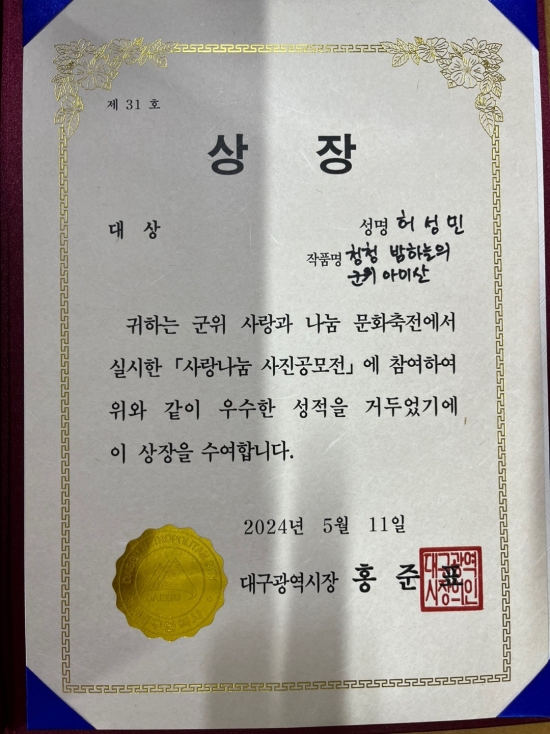 제 31 호
상 장
대 상
성명 허성민
작품명 청청 밤하늘의
군위 아미산
귀하는 군위 사랑과 나눔 문화축전에서
실시한 「사랑나눔 사진공모전」에 참여하여
위와 같이 우수한 성적을 거두었기에
이 상장을 수여합니다.
2024년 5월 11일
대구광역시장 홍 준 표
대구광역
시장의인